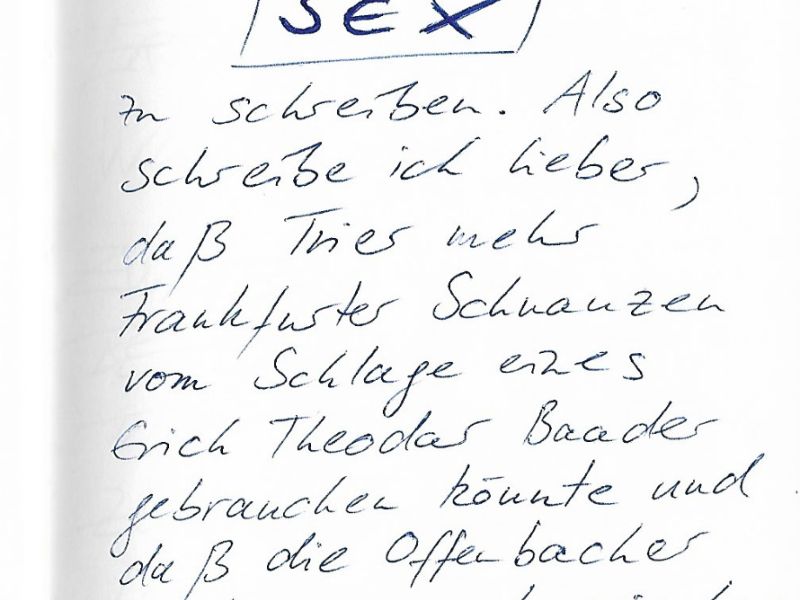 SEX
zu schreiben. Also
schreibe ich lieber,
daß Trier mehr
Frankfurter Schnauzen
vom Schlage eines
Erich Theodor Baader
gebrauchen könnte und
daß die Offenbacher